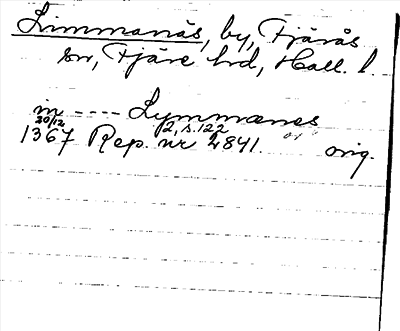 Limmanäs, by, Fjärås
sn, Fjäre hd, Hall. l.
in ---- Lymmanes
20/12 2, s. 122
1367 Rep. nr 4841. orig.